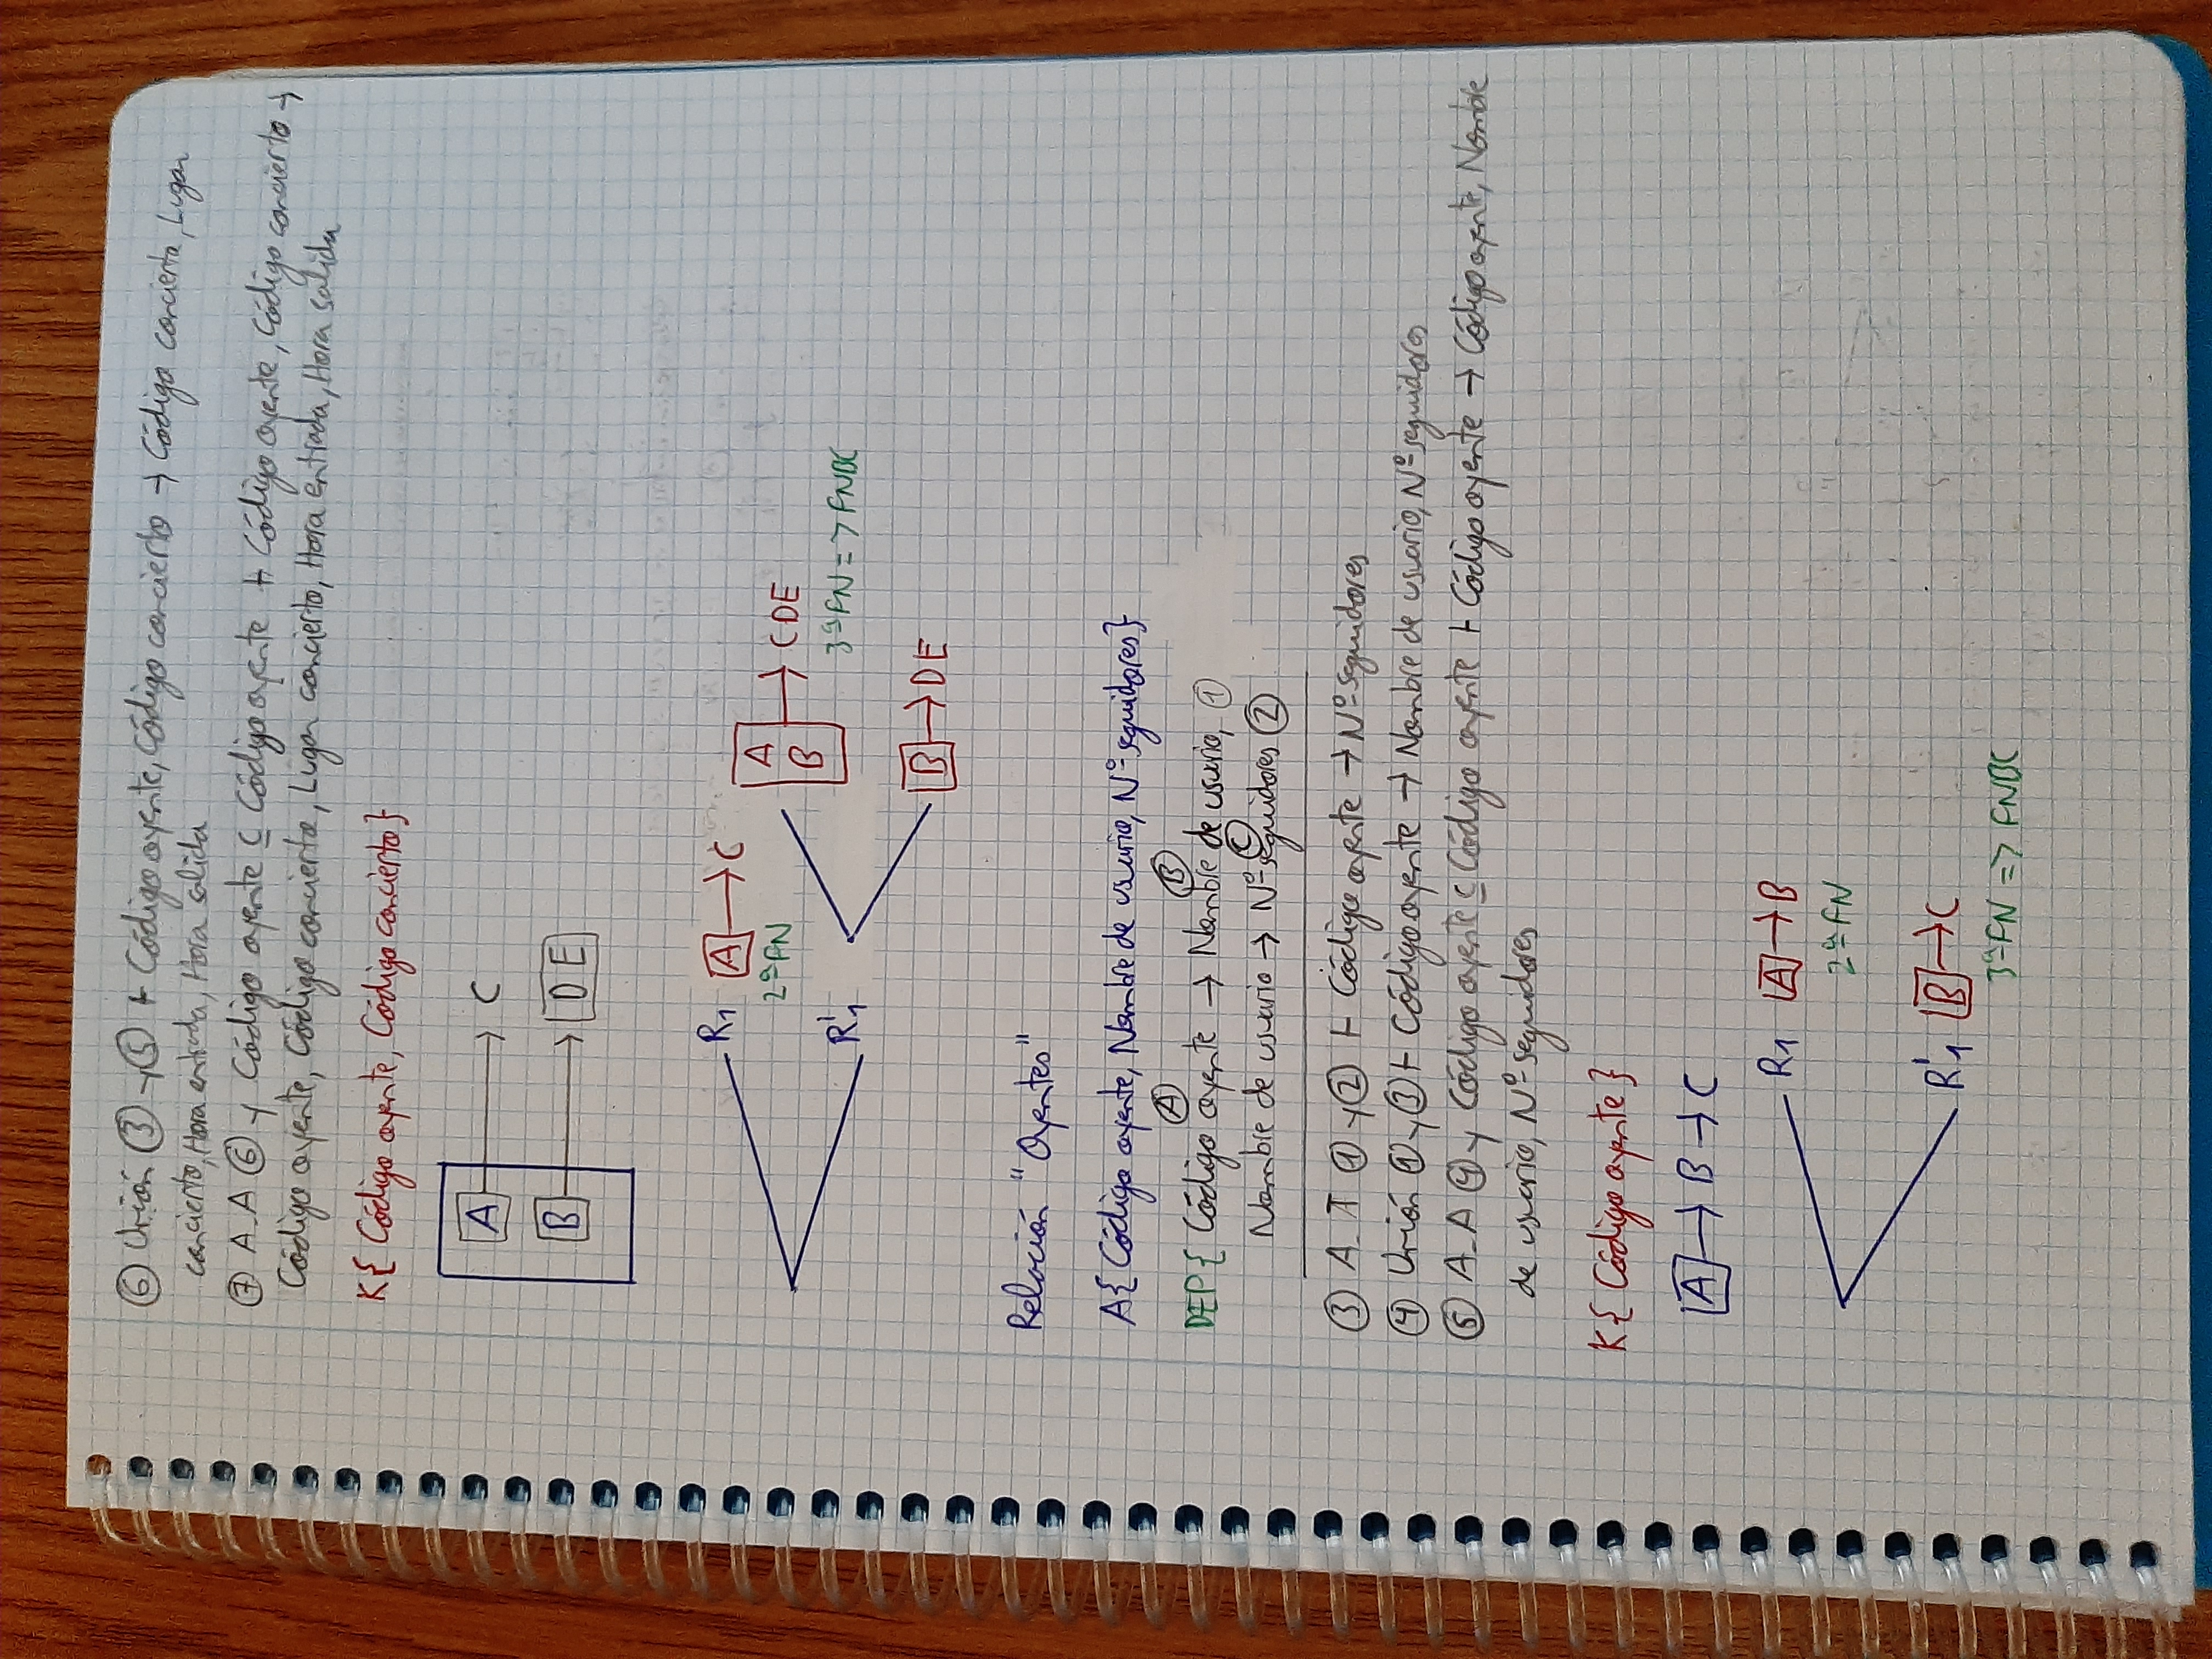 ⑥ Unión ③ y ⑤ ⊢ Código oyente, Código concierto → Código concierto, Lugar
concierto, Hora entrada, Hora salida
⑦ A.A ⑥ y Código oyente ⊆ Código oyente ⊢ Código oyente, Código concierto →
Código oyente, Código concierto, Lugar concierto, Hora entrada, Hora salida
K{ Código oyente, Código concierto}
A → C
B → D E
R1 A → C
2ª FN
A
B → C D E
3ª FN => FNBC
R'1
B → D E
Relación "Oyentes"
A{ Código oyente, Nombre de usuario, Nº seguidores}
Ⓐ Ⓑ
DEP{ Código oyente → Nombre de usuario, ①
Ⓒ
Nombre de usuario → Nº seguidores ②
③ A.T ① y ② ⊢ Código oyente → Nº seguidores
④ Unión ① y ③ ⊢ Código oyente → Nombre de usuario, Nº seguidores
⑤ A.A ④ y Código oyente ⊆ Código oyente ⊢ Código oyente → Código oyente, Nombre
de usuario, Nº seguidores
K{ Código oyente }
A → B → C
R1 A → B
2ª FN
R'1 B → C
3ª FN => FNBC